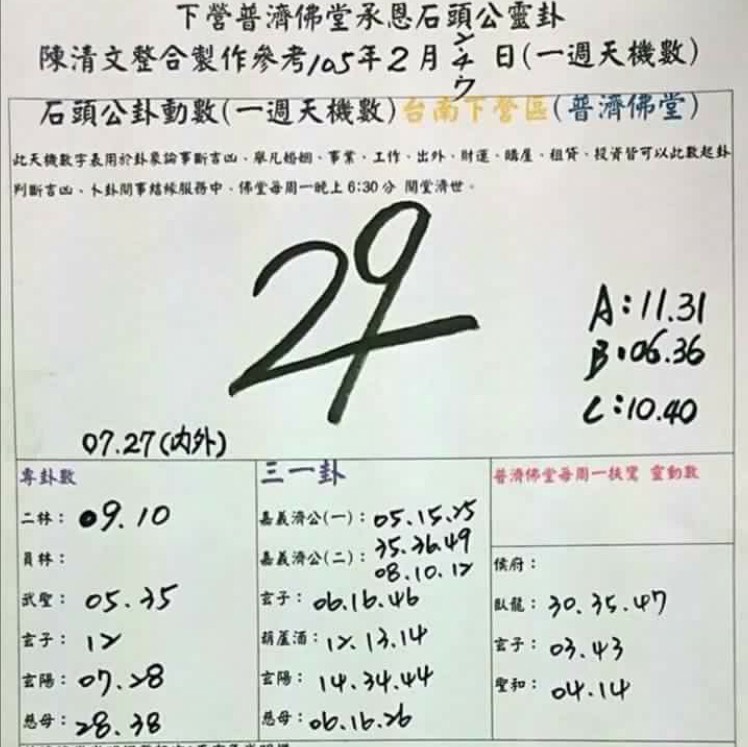 下營普濟佛堂承恩石頭公靈卦
陳清文整合製作參考105年2月 2 4 日(一週天機數)
石頭公卦動數(一週天機數)台南下營區(普濟佛堂)
此天機數字表用於卦象論事斷吉凶、舉凡婚姻、事業、工作、出外、財運、購屋、租賃、投資皆可以此數起卦
判斷吉凶、卜卦問事結緣服務中。佛堂每周一晚上6:30分 開堂濟世。
29
A:11.31
B:06.36
C:10.40
07.27(內外)
專卦數
二林: 09.10
員林:
武聖: 05.35
玄子: 12
玄陽: 07.28
慈母: 28.38
三一卦
嘉義濟公(一): 05.15.25
嘉義濟公(二): 35.36.49
08.10.12
玄子: 06.16.46
葫蘆酒: 12.13.14
玄陽: 14.34.44
慈母: 06.16.26
普濟佛堂每周一扶鸞 靈動數
侯府:
臥龍: 30.35.47
玄子: 03.43
聖和: 04.14